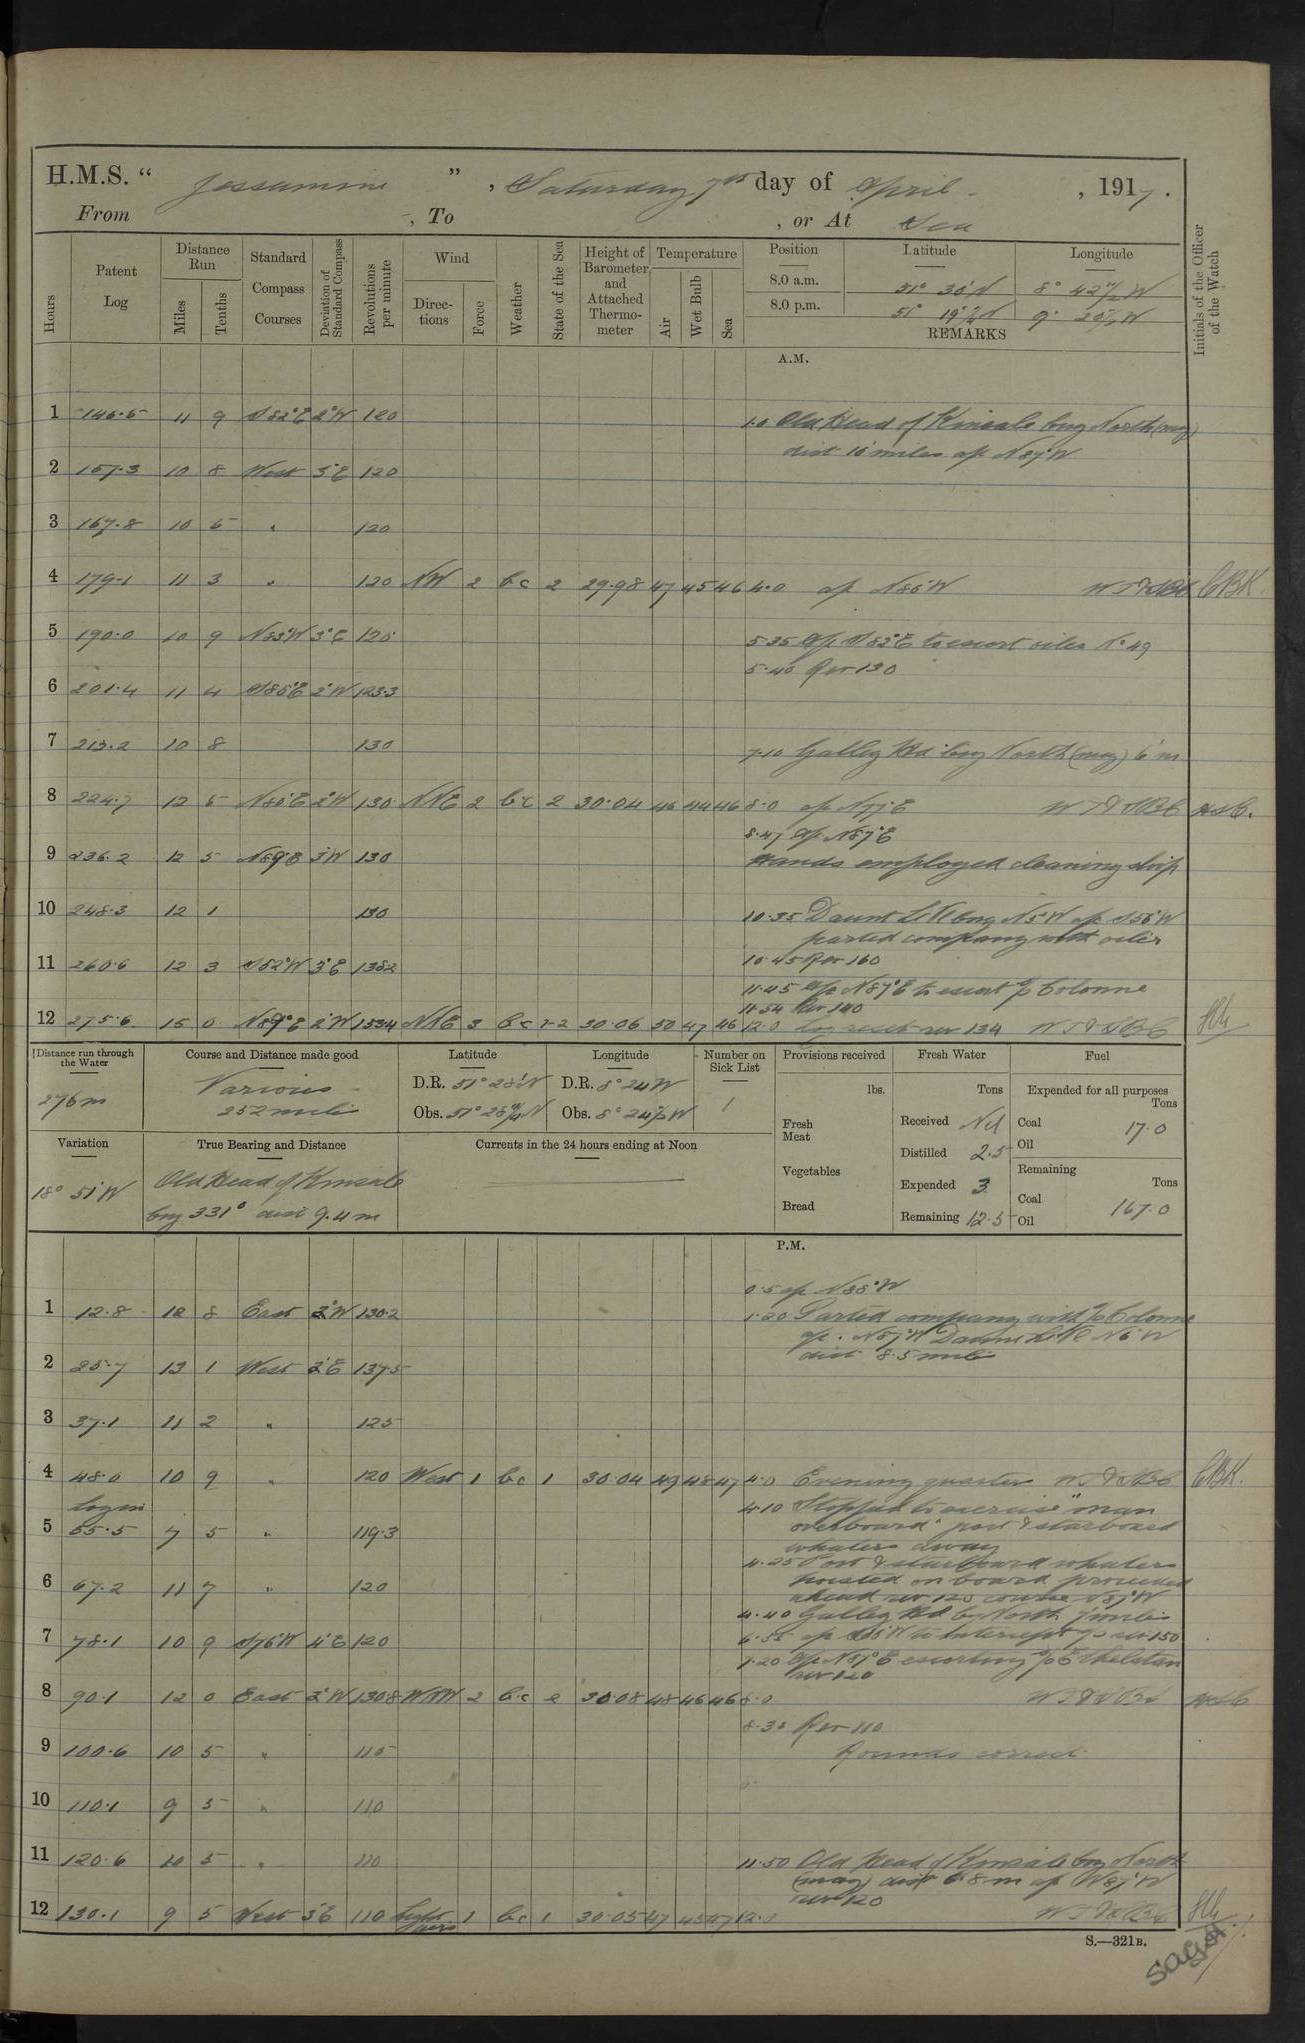 H.M.S. “ Jessamine ”, Saturday 7th day of April , 1917.
From , To , or At Sea
Hours
Patent Log
Distance Run
Miles
Tenths
Standard Compass Courses
Deviation of Standard Compass
Revolutions per minute
Wind
Directions
Force
Weather
State of the Sea
Height of Barometer and Attached Thermometer
Temperature
Air
Wet Bulb
Sea
Position Latitude Longitude
8.0 a.m. 51° 30' N 8° 42 1/2 W
8.0 p.m. 51° 19 N 9° W
REMARKS
Initials of the Officer of the Watch
A.M.
1 146.5 11 9 S82°E 2°W 120 1.0 Old Head of Kinsale brg North (mag)
dist 10 miles a/c N87°W
2 157.3 10 8 West 3°E 120
3 167.8 10 5 " 120
4 179.1 11 3 " 120 NW 2 bc 2 29.98 47 45 46 4.0 a/c N85°W CBK.
5 190.0 10 9 N83°W 3°E 120 5.35 a/c S82°E to escort oiler No 49
5.40 Rev 130
6 201.4 11 4 S85°E 2°W 123.3
7 213.2 10 8 130 7.10 Galley Hd brg North (mag) 6' m
8 224.7 12 5 N80°E 2°W 130 NNE 2 bc 2 30.04 46 44 46 8.0 a/c N77°E
8.47 a/c N87°E
9 236.2 12 5 N89°E 3°W 130 Hands employed cleaning ship
10 248.3 12 1 130 10.35 Daunt Lt Vl brg N5°W a/c S56°W
parted company with oiler
10.45 Rev 160
11 260.6 12 3 S82°W 3°E 138.2
11.45 a/c N87°E to escort Colonne
11.54 Rev 140
12 275.6 15 0 N89°E 2°W 153.4 NNE 3 bc 2-2 30.06 50 47 46 12.0 Log reset rev 134
Distance run through the Water
276 m
Course and Distance made good
Various
252 miles
Latitude
D.R. 51° 28' N
Obs. 51° 28 N
Longitude
D.R. 8° 24 W
Obs. 8° 24 W
Number on Sick List
1
Provisions received
lbs.
Fresh Meat
Vegetables
Bread
Fresh Water
Tons
Received Nil
Distilled 2.5
Expended 3
Remaining 12.5
Fuel
Expended for all purposes
Tons
Coal 17.0
Oil
Remaining
Tons
Coal 167.0
Oil
Variation
18° 51' W
True Bearing and Distance
Old Head of Kinsale
brg 331° dist 9.4 m
Currents in the 24 hours ending at Noon
P.M.
0.5 a/c N88°W
1 12.8 12 8 East 2°W 130.2 1.20 Parted company with Colonne
a/c N87°W Daunt Lt Vl N6°W
dist 8.5 miles
2 25.7 13 1 West 3°E 137.5
3 37.1 11 2 " 125
4 48.0 10 9 " 120 West 1 bc 1 30.04 49 48 47 4.0 Evening quarters CBK.
Log in
4.10 Stopped to exercise "man
overboard" port & starboard
whalers away
5 55.5 7 5 " 119.3
4.25 Port & starboard whalers
hoisted on board proceeded
ahead rev 120 course N87°W
6 67.2 11 7 " 120
4.40 Galley Hd b North 7 miles
7 78.1 10 9 S76°W 4°E 120 6.55 a/c to intercept rev 150
7.20 a/c N87°E escorting Athelstan
rev 120
8 90.1 12 0 East 3°W 130.8 WNW 2 bc 2 30.08 48 46 46 8.0
8.30 Rev 110
9 100.6 10 5 " 115 Rounds correct
10 110.1 9 5 " 110
11 120.6 10 5 " 110 11.50 Old Head of Kinsale brg North
(mag) dist 6.8 m a/c N87°W
rev 120
12 130.1 9 5 West 3°E 110 Light airs 1 bc 1 30.05 47 45 47 12.0
S.—321B.